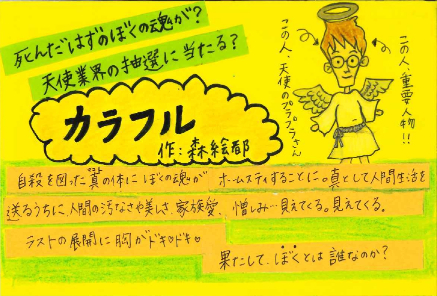 死んだはずのぼくの魂が？
天使業界の抽選に当たる？
カラフル
作：森絵都
この人、天使のプラプラさん
この人、重要人物！！
自殺を図った"真"の体にぼくの魂がホームステイすることに。真として人間生活を
送るうちに人間の汚なさや美しさ、家族愛、憎しみ…見えてくる。見えてくる。
ラストの展開に胸がドキ♡ドキ♡
果たして、ぼくとは誰なのか？